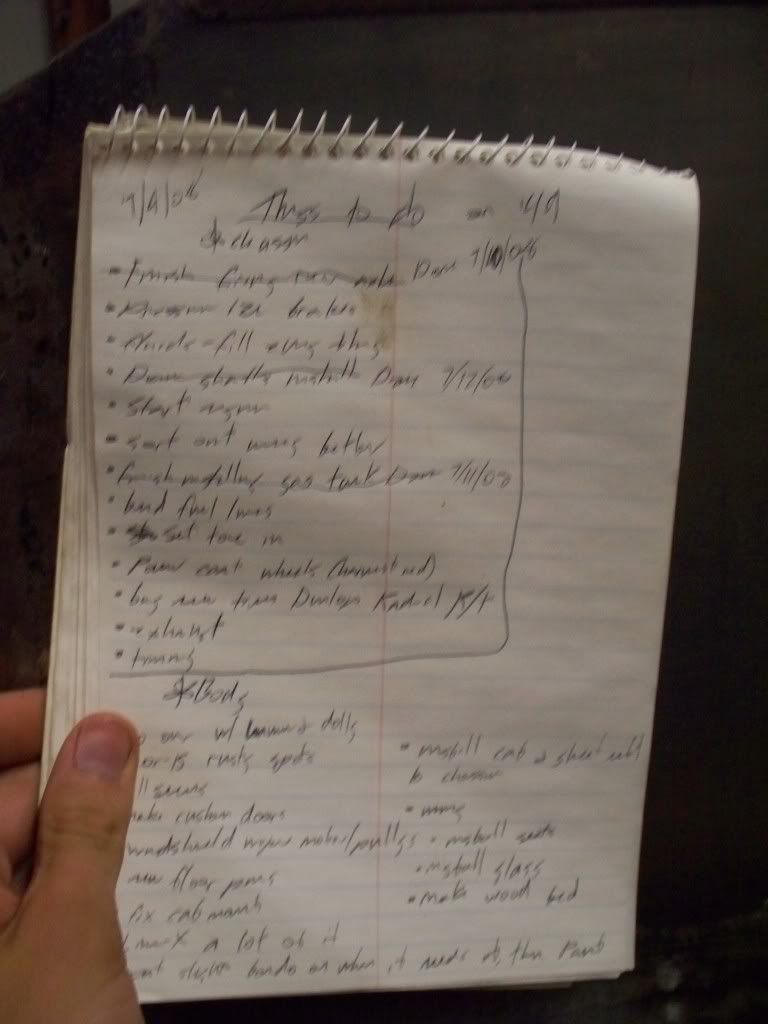 7/9/08 Things to do on '49
* chassis
• Finish firing Done 7/10/08
• brakes
• fluids - fill thing
• Drive shafts install Done 7/17/08
• Start engine
• sort out wiring better
• finish installing gas tank Done 7/11/08
• bend fuel lines
• set toe in
• Paint wheels (harvest red)
• buy new tires Dunlop Radial R/T
• exhaust
• timing
* Body
over w/ hammer & dolly
rusty spots
ll seams
make custom doors
windshield wiper motor/pulleys
new floor pans
fix cab mounts
a lot of it
bondo on when it needs it, then Paint
• install cab & sheet metal
to chassis
• wiring
• install seats
• install glass
• make wood bed